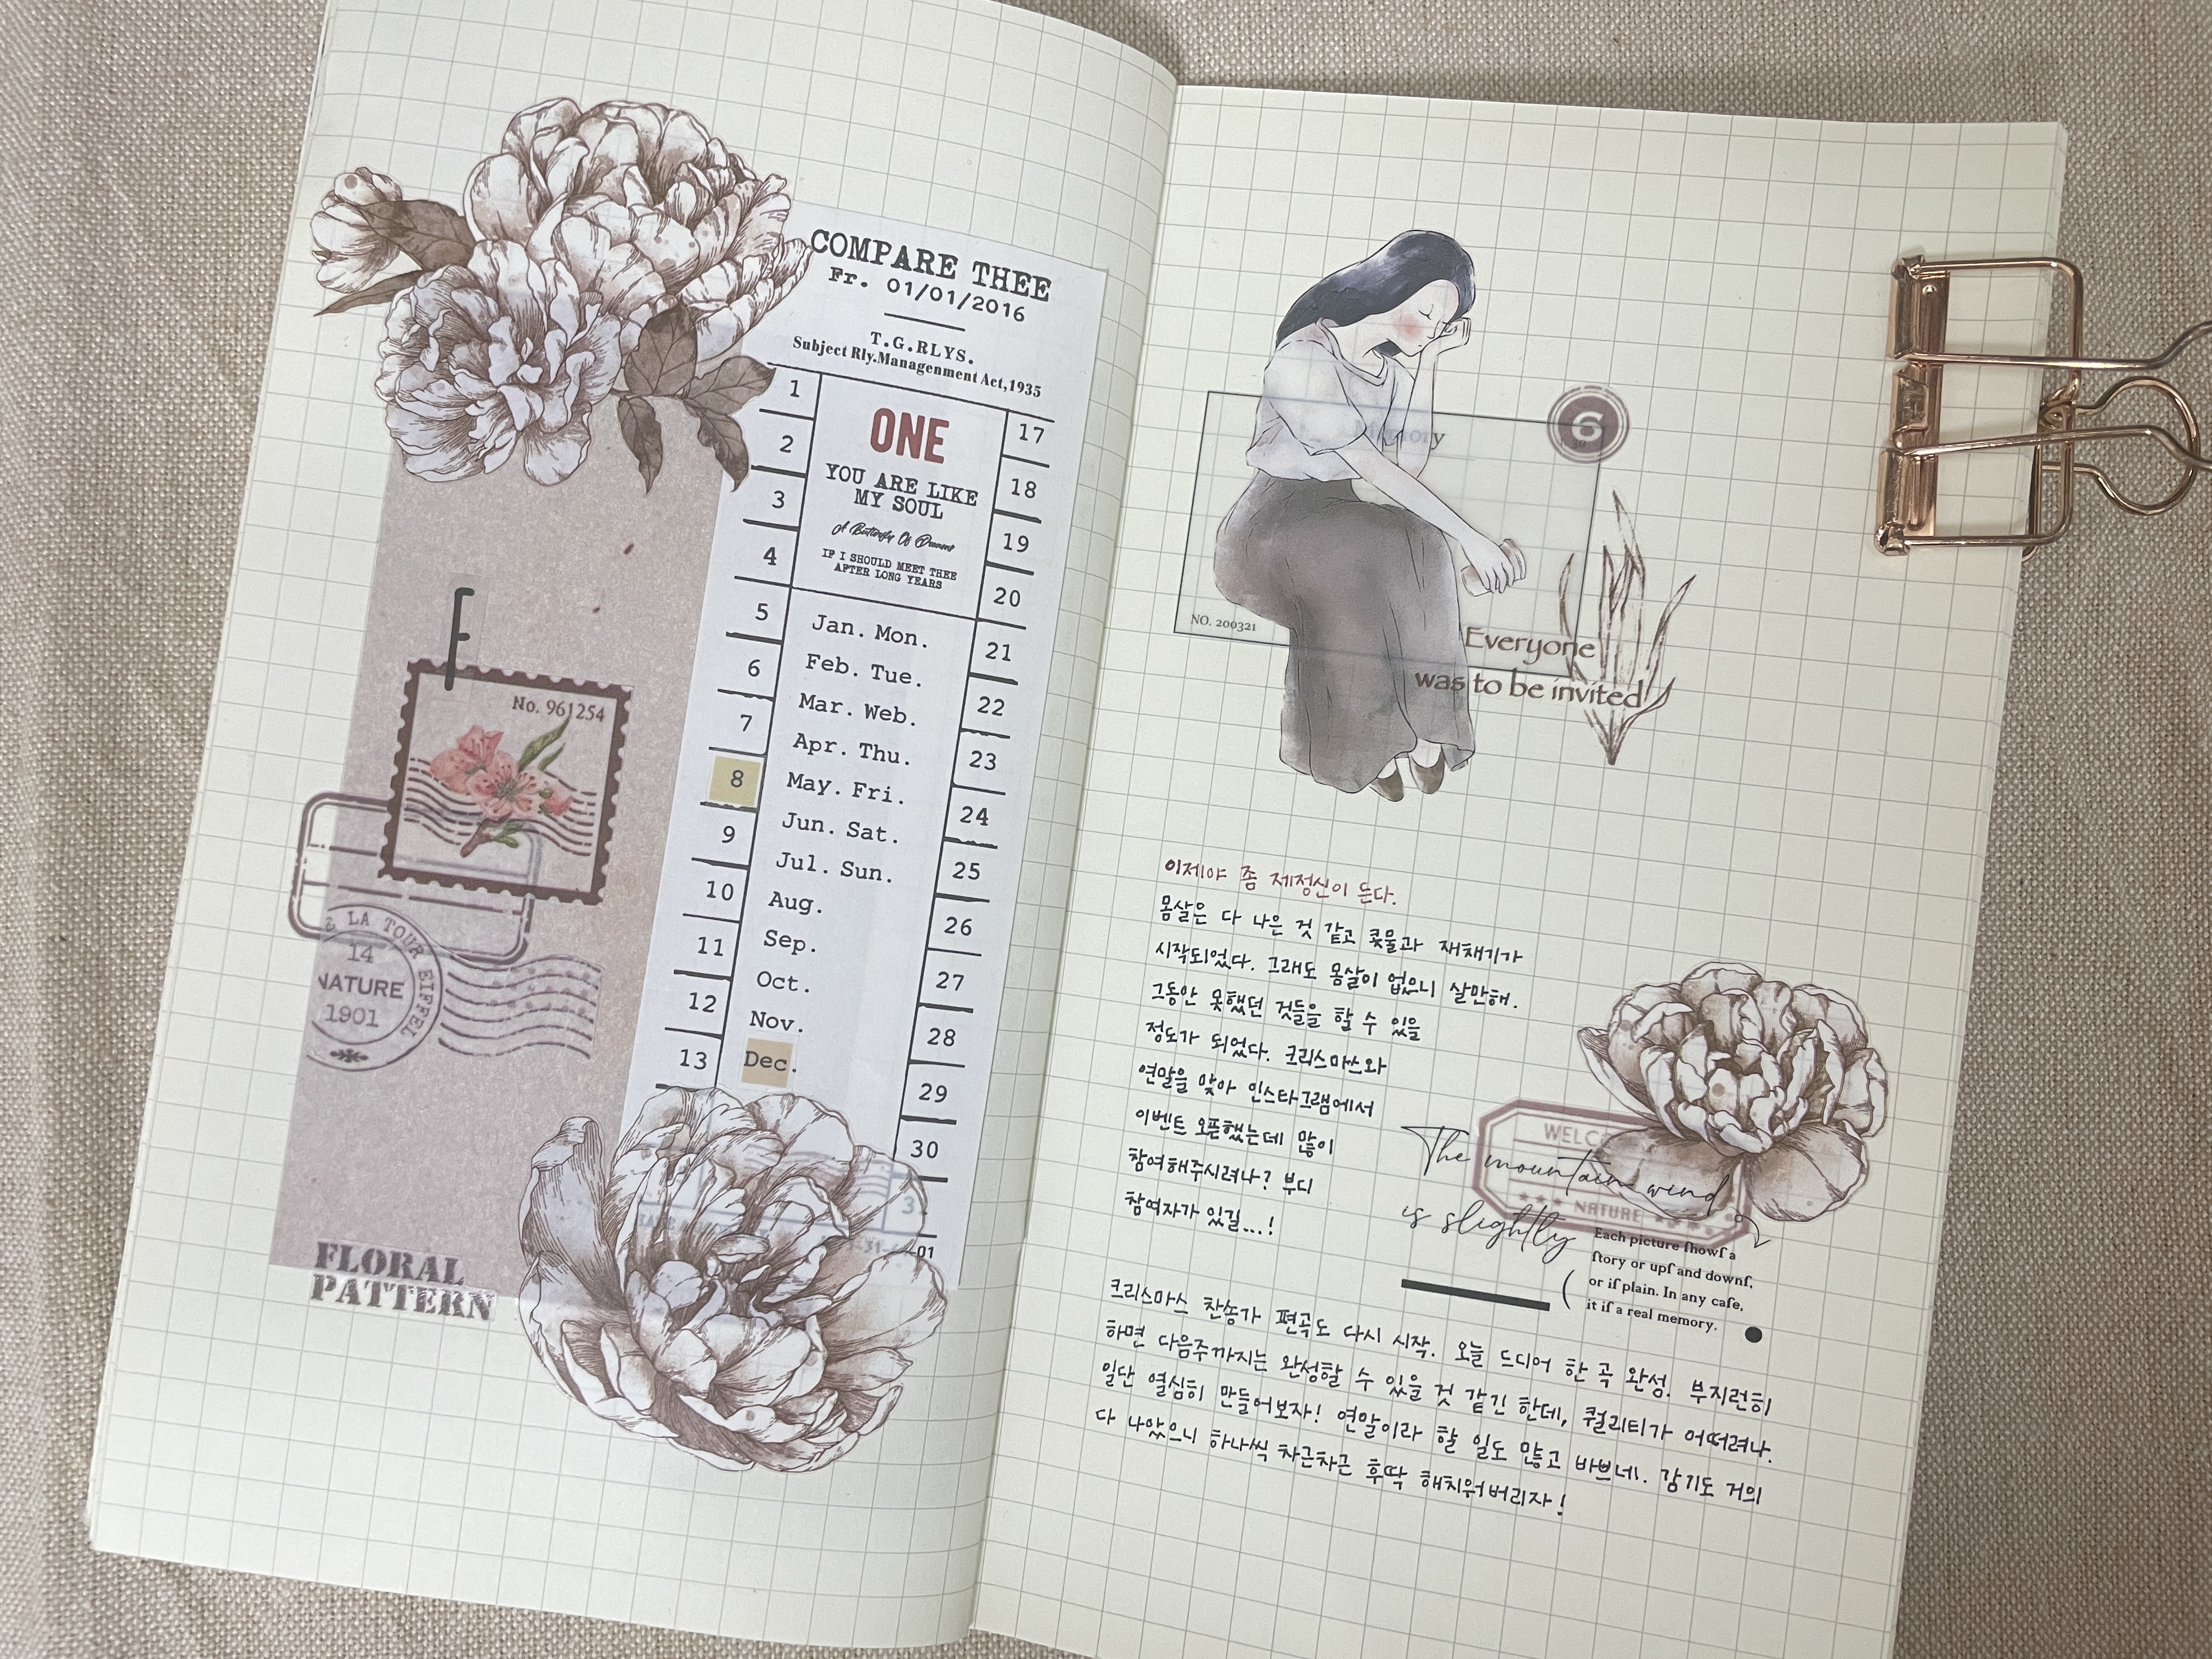 COMPARE THEE
Fr. 01/01/2016
T.G.RLYS.
Subject Rly.Managenment Act,1935
1
2
3
4
5
6
7
8
9
10
11
12
13
ONE
YOU ARE LIKE
MY SOUL
A Butterfly Of Dreams
IF I SHOULD MEET THEE
AFTER LONG YEARS
Jan. Mon.
Feb. Tue.
Mar. Web.
Apr. Thu.
May. Fri.
Jun. Sat.
Jul. Sun.
Aug.
Sep.
Oct.
Nov.
Dec.
17
18
19
20
21
22
23
24
25
26
27
28
29
30
01
F
No. 961254
LA TOUR EIFFEL
14
NATURE
1901
FLORAL
PATTERN
6
NO. 200321
Everyone
was to be invited
이제야 좀 제정신이 든다.
몸살은 다 나은 것 같고 콧물과 재채기가
시작되었다. 그래도 몸살이 없으니 살만해.
그동안 못했던 것들을 할 수 있을
정도가 되었다. 크리스마스와
연말을 맞아 인스타그램에서
이벤트 오픈했는데 많이
참여해주시려나? 부디
참여자가 있길...!
The mountain wind
is slightly
WELC
NATURE
Each picture ſhowſ a
ſtory or upſ and downſ,
or iſ plain. In any caſe,
it iſ a real memory.
크리스마스 찬송가 편곡도 다시 시작. 오늘 드디어 한 곡 완성. 부지런히
하면 다음주까지는 완성할 수 있을 것 같긴 한데, 퀄리티가 어떠려나.
일단 열심히 만들어보자! 연말이라 할 일도 많고 바쁘네. 감기도 거의
다 나았으니 하나씩 차근차근 후딱 해치워버리자!